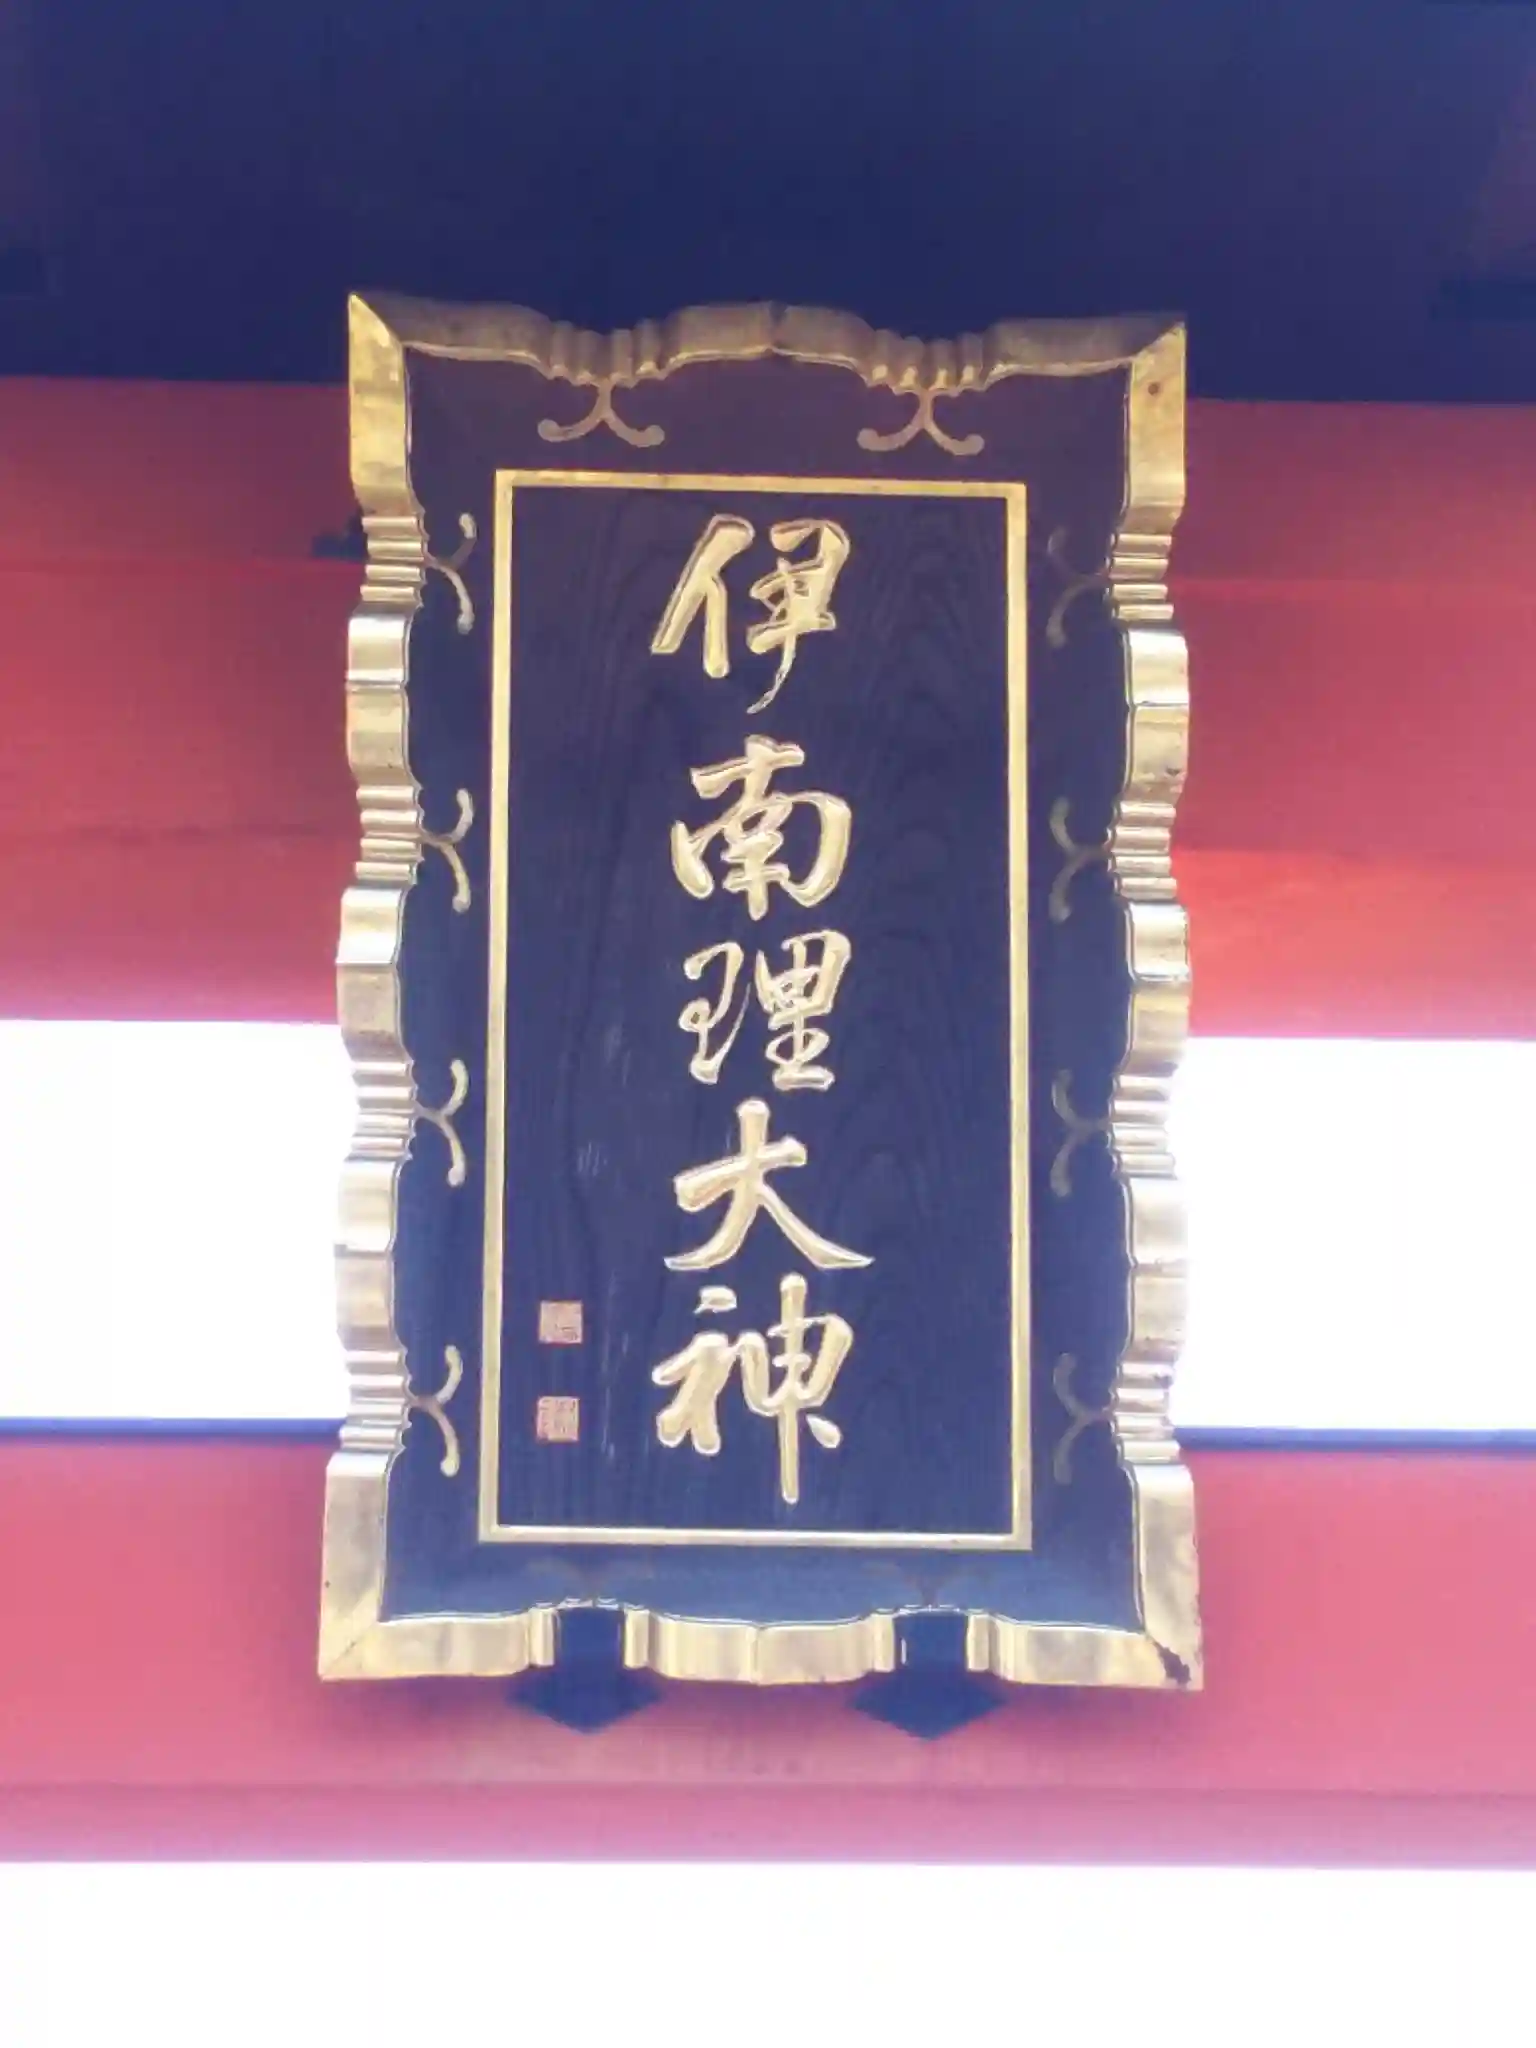 伊南理大神